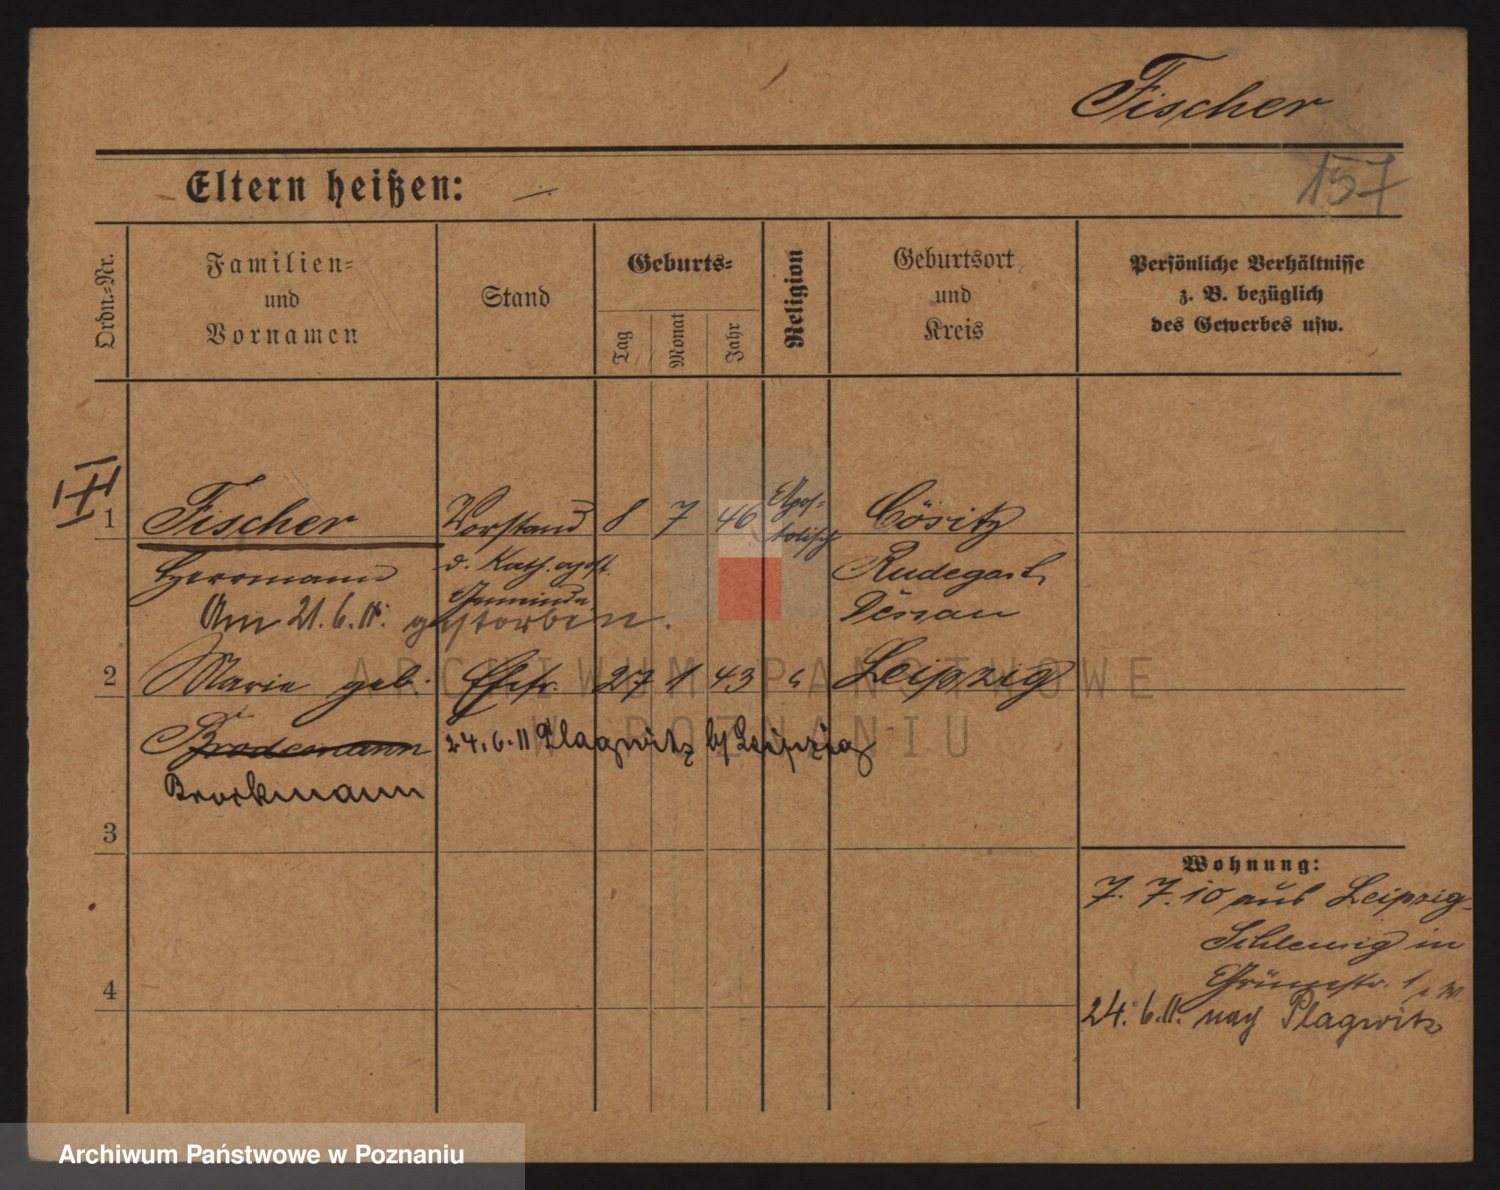 Fischer
157
Eltern heißen:
Ordn.-Nr.
Familien-
und
Vornamen
Stand
Geburts-
Tag
Monat
Jahr
Religion
Geburtsort
und
Kreis
Persönliche Verhältnisse
z. B. bezüglich
des Gewerbes usw.
1 Fischer Vorstand 8 7 46 Apos-
tolisch
Cösitz
Herrmann d. Kath. apost.
Gemeinde
Radegast
Dessau
Am 21.6.11. gestorben.
2 Marie geb. Ehefr. 27 1 43 " Leipzig
Brodemann 24.6.11 Plagwitz b/Leipzig
Brockmann
3
4
Wohnung:
7. 7.10 aus Leipzig-
Schleussig in
24. 6.11. nach Plagwitz
ARCHIWUM PAŃSTWOWE
W POZNANIU
Archiwum Państwowe w Poznaniu